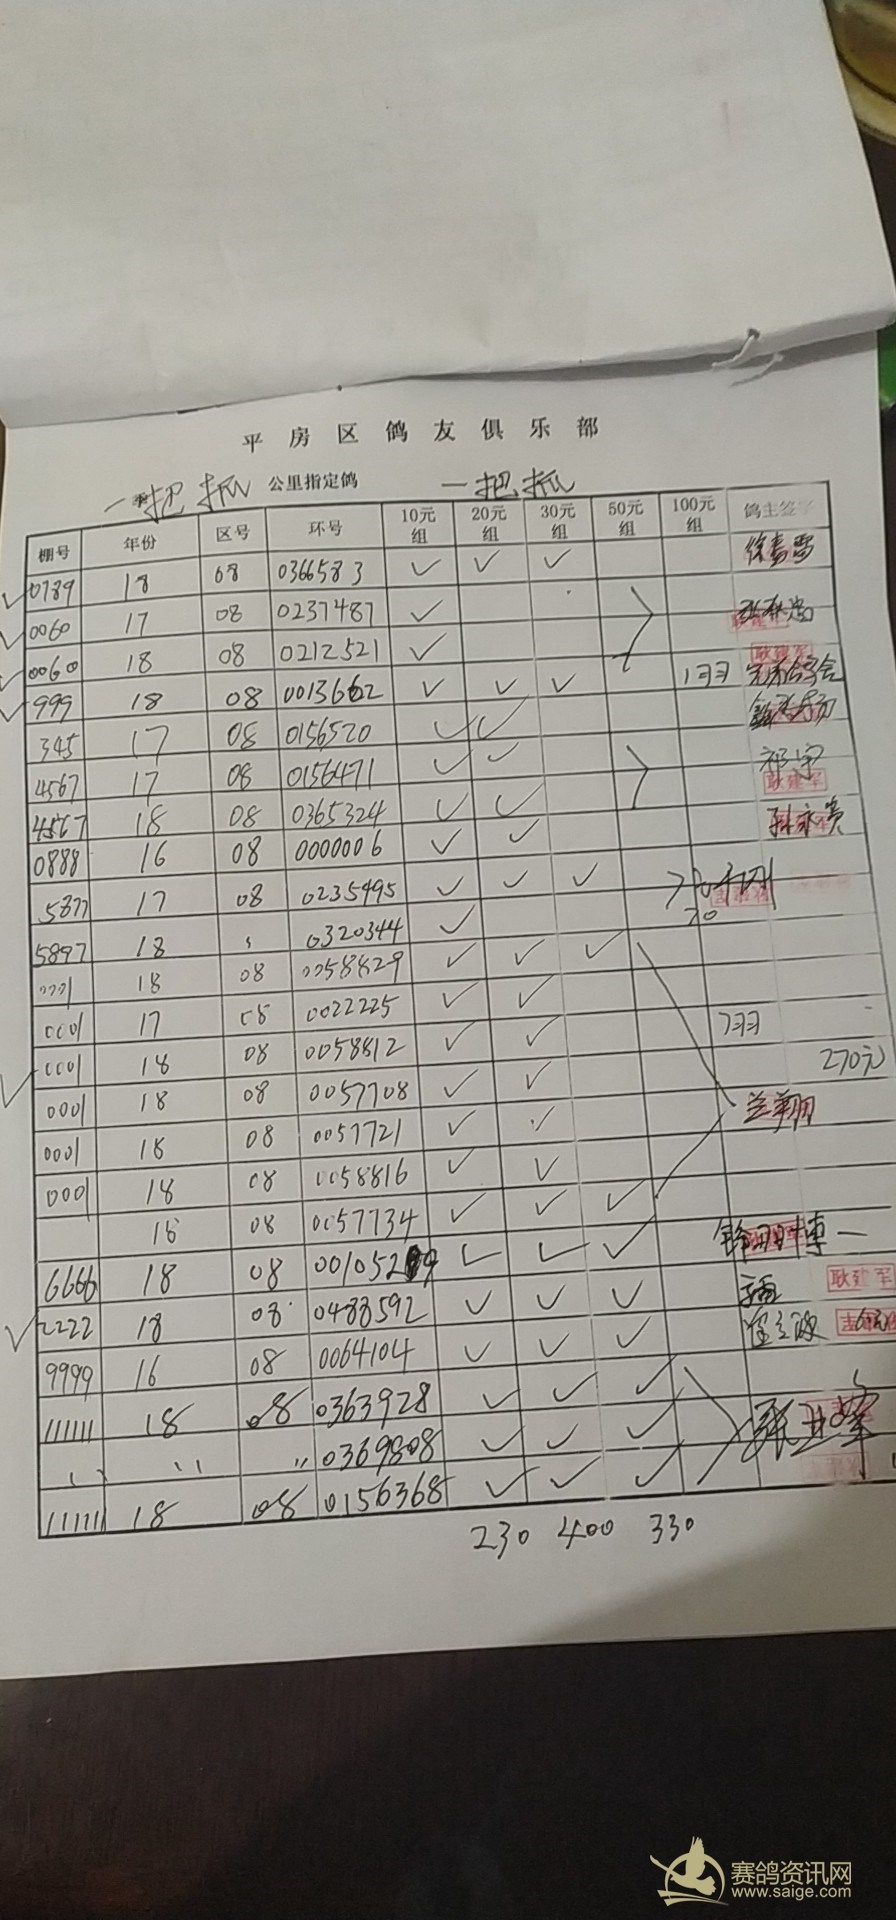 平房区鸽友俱乐部
一把抓 公里指定鸽 一把抓
棚号 年份 区号 环号 10元组 20元组 30元组 50元组 100元组 鸽主签字
0789 18 08 0366583 ✓ ✓ ✓
0060 17 08 0237487 ✓
0060 18 08 0212521 ✓ 耿建军
999 18 08 0013662 ✓ ✓ ✓ 1羽
345 17 08 0156520 ✓ ✓
4567 17 08 0156471 ✓ ✓ 祁宇 耿建军
4567 18 08 0365324 ✓ ✓
0888 16 08 0000006 ✓ ✓ 孙永贵
5877 17 08 0235495 ✓ ✓ ✓
5897 18 0320344 ✓
0001 18 08 0058829 ✓ ✓ ✓
0001 17 08 0022225 ✓ ✓
0001 18 08 0058812 ✓ ✓ 7羽
0001 18 08 0057708 ✓ ✓ 270元
0001 18 08 0057721 ✓ ✓ 兰翔
0001 18 08 0058816 ✓ ✓
18 08 0057734 ✓ ✓ ✓
6666 18 08 ✓ ✓ ✓
2222 18 08 0488592 ✓ ✓ ✓ 耿建军
9999 16 08 0064104 ✓ ✓ ✓
111111 18 08 0363928 ✓ ✓ ✓
〃 〃 〃 0369808 ✓ ✓ ✓ 张亚峰
111111 18 08 0156368 ✓ ✓ ✓
230 400 330
赛鸽资讯网
www.saige.com